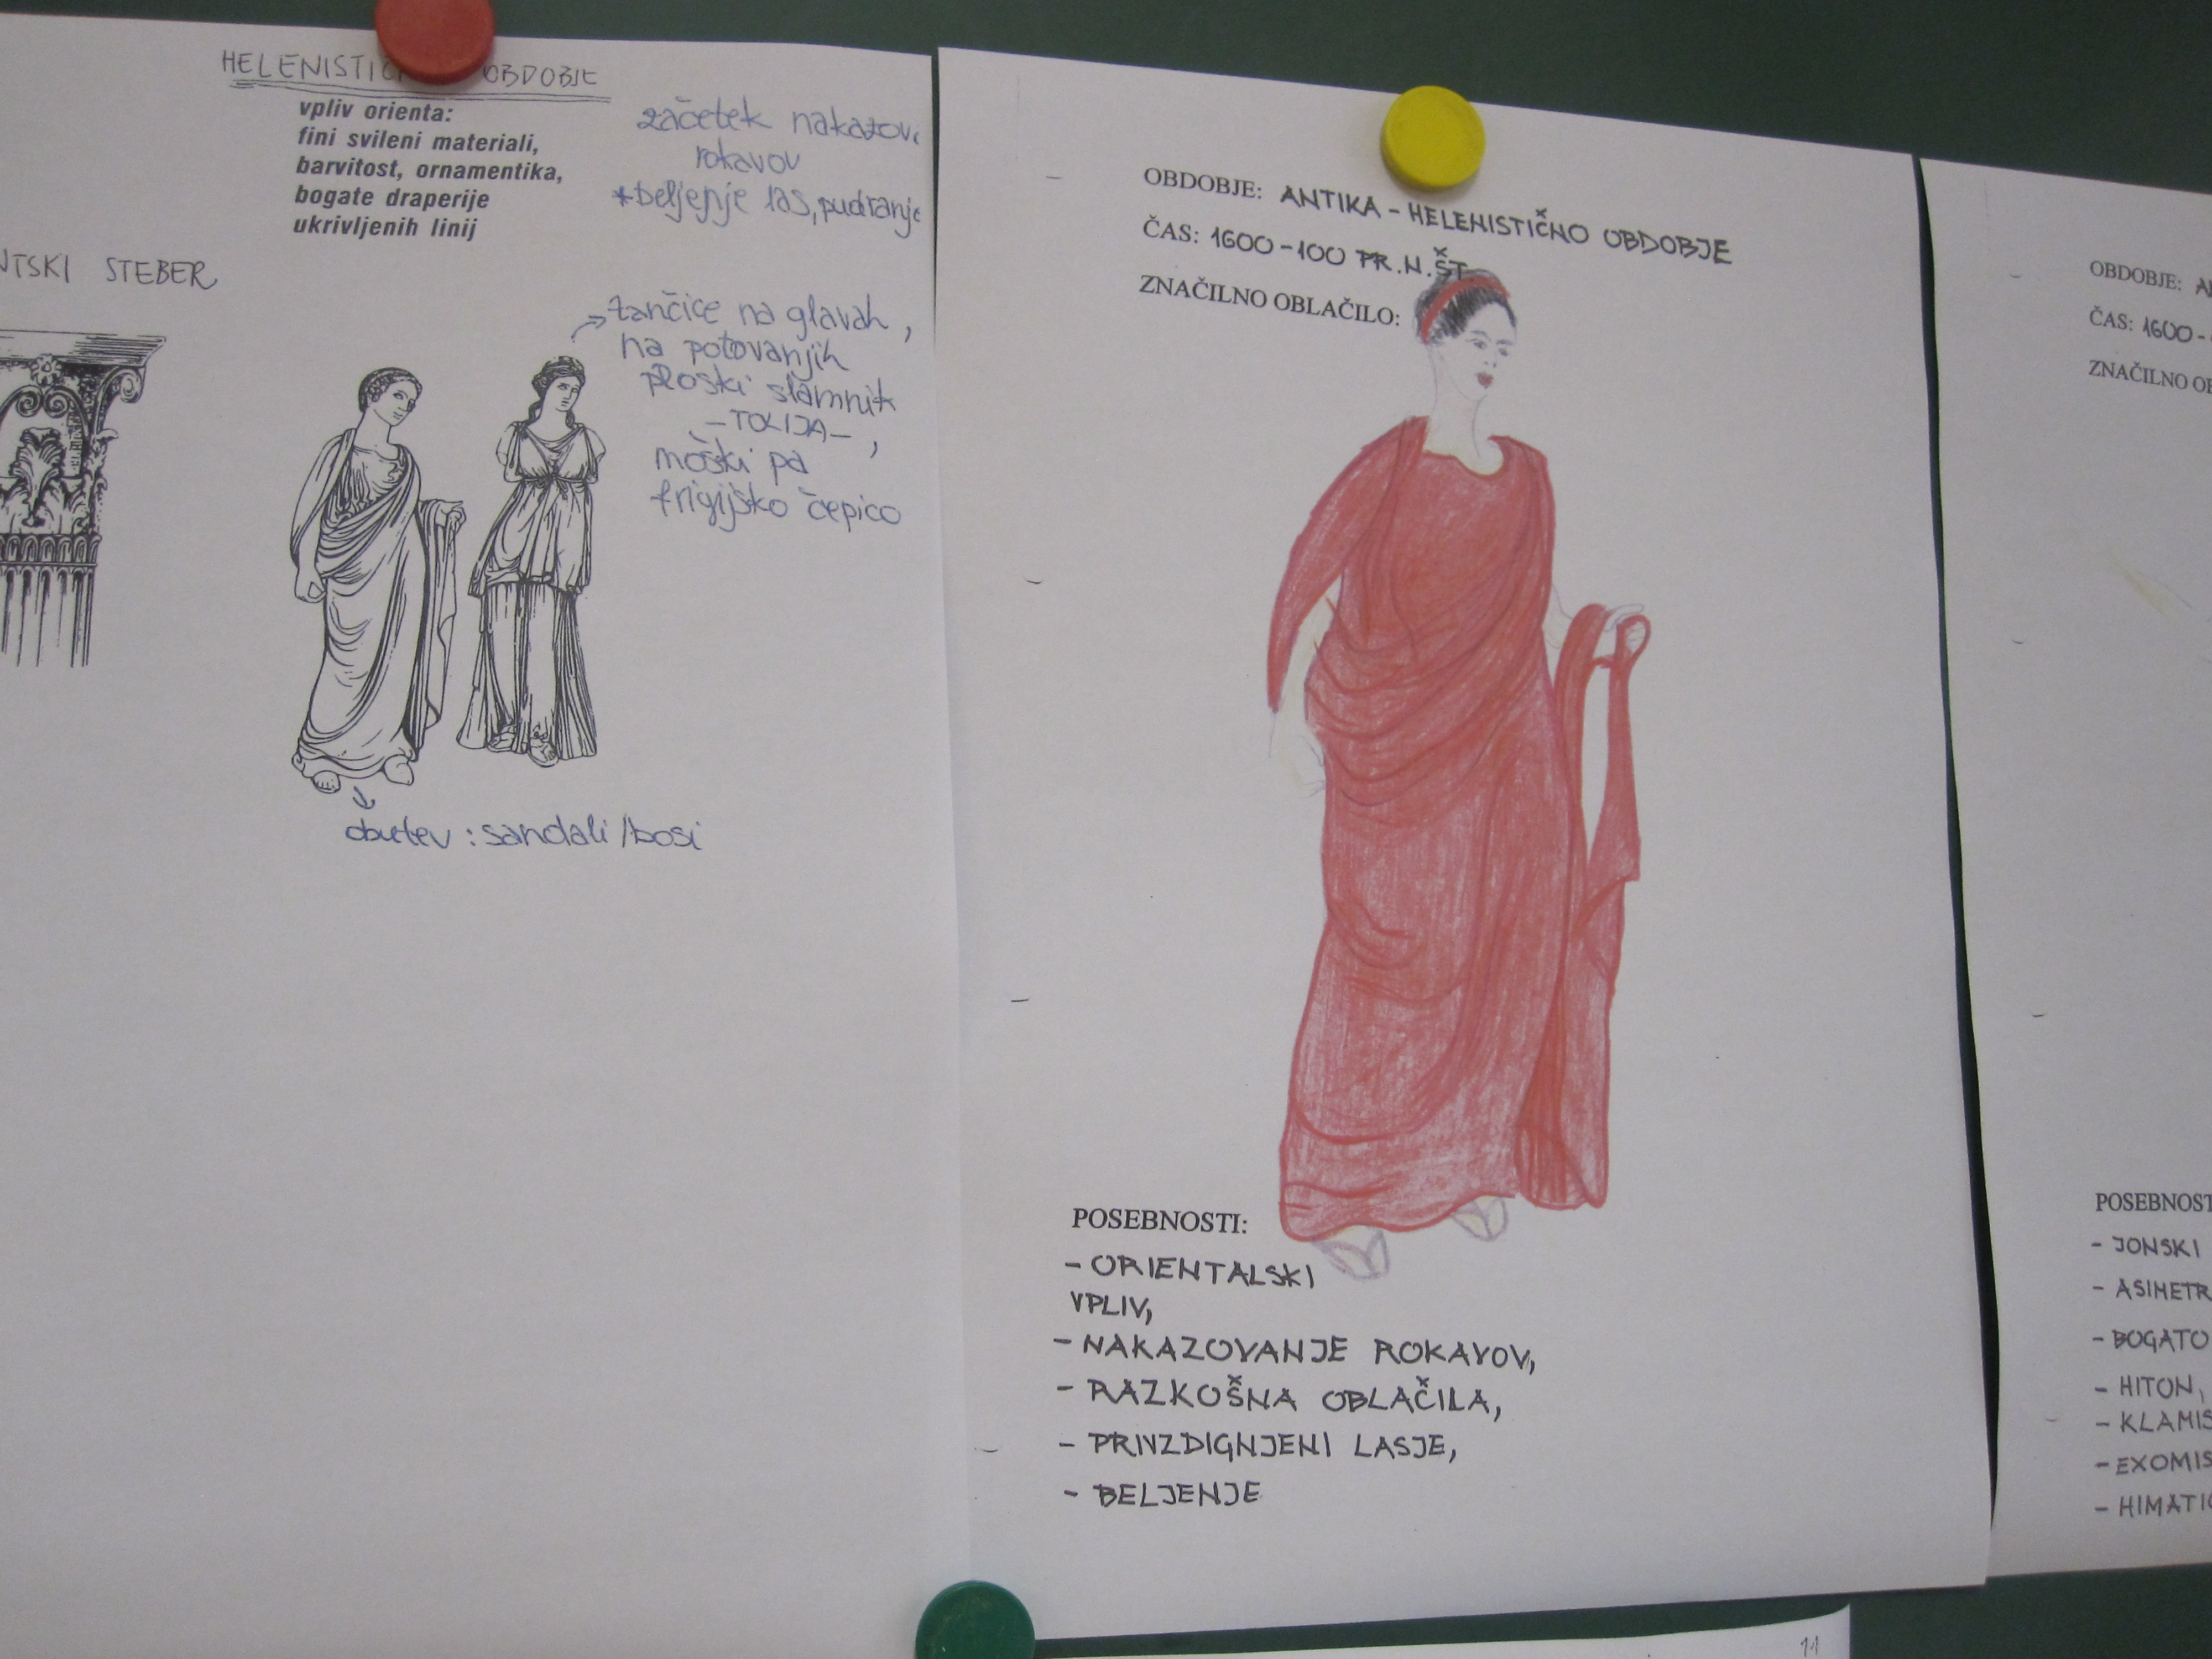 HELENISTIČ OBDOBJE
vpliv orienta:
fini svileni materiali,
barvitost, ornamentika,
bogate draperije
ukrivljenih linij
začetek nakazov
rokavov
*beljenje las, pudranje
NTSKI STEBER
tančice na glavah,
na potovanjih
ploski slamnik
-TOLIJA-,
moški pa
frigijsko čepico
obutev: sandali/bosi
OBDOBJE: ANTIKA - HELENISTIČNO OBDOBJE
ČAS: 1600-100 PR.N.ŠT.
ZNAČILNO OBLAČILO:
POSEBNOSTI:
- ORIENTALSKI
VPLIV,
- NAKAZOVANJE ROKAVOV,
- RAZKOŠNA OBLAČILA,
- PRIVZDIGNJENI LASJE,
- BELJENJE
OBDOBJE: A
ČAS: 1600-
ZNAČILNO OB
POSEBNOST
- JONSKI
- ASIMETR
- BOGATO
- HITON,
- KLAMIS
- EXOMIS
- HIMATIO
11